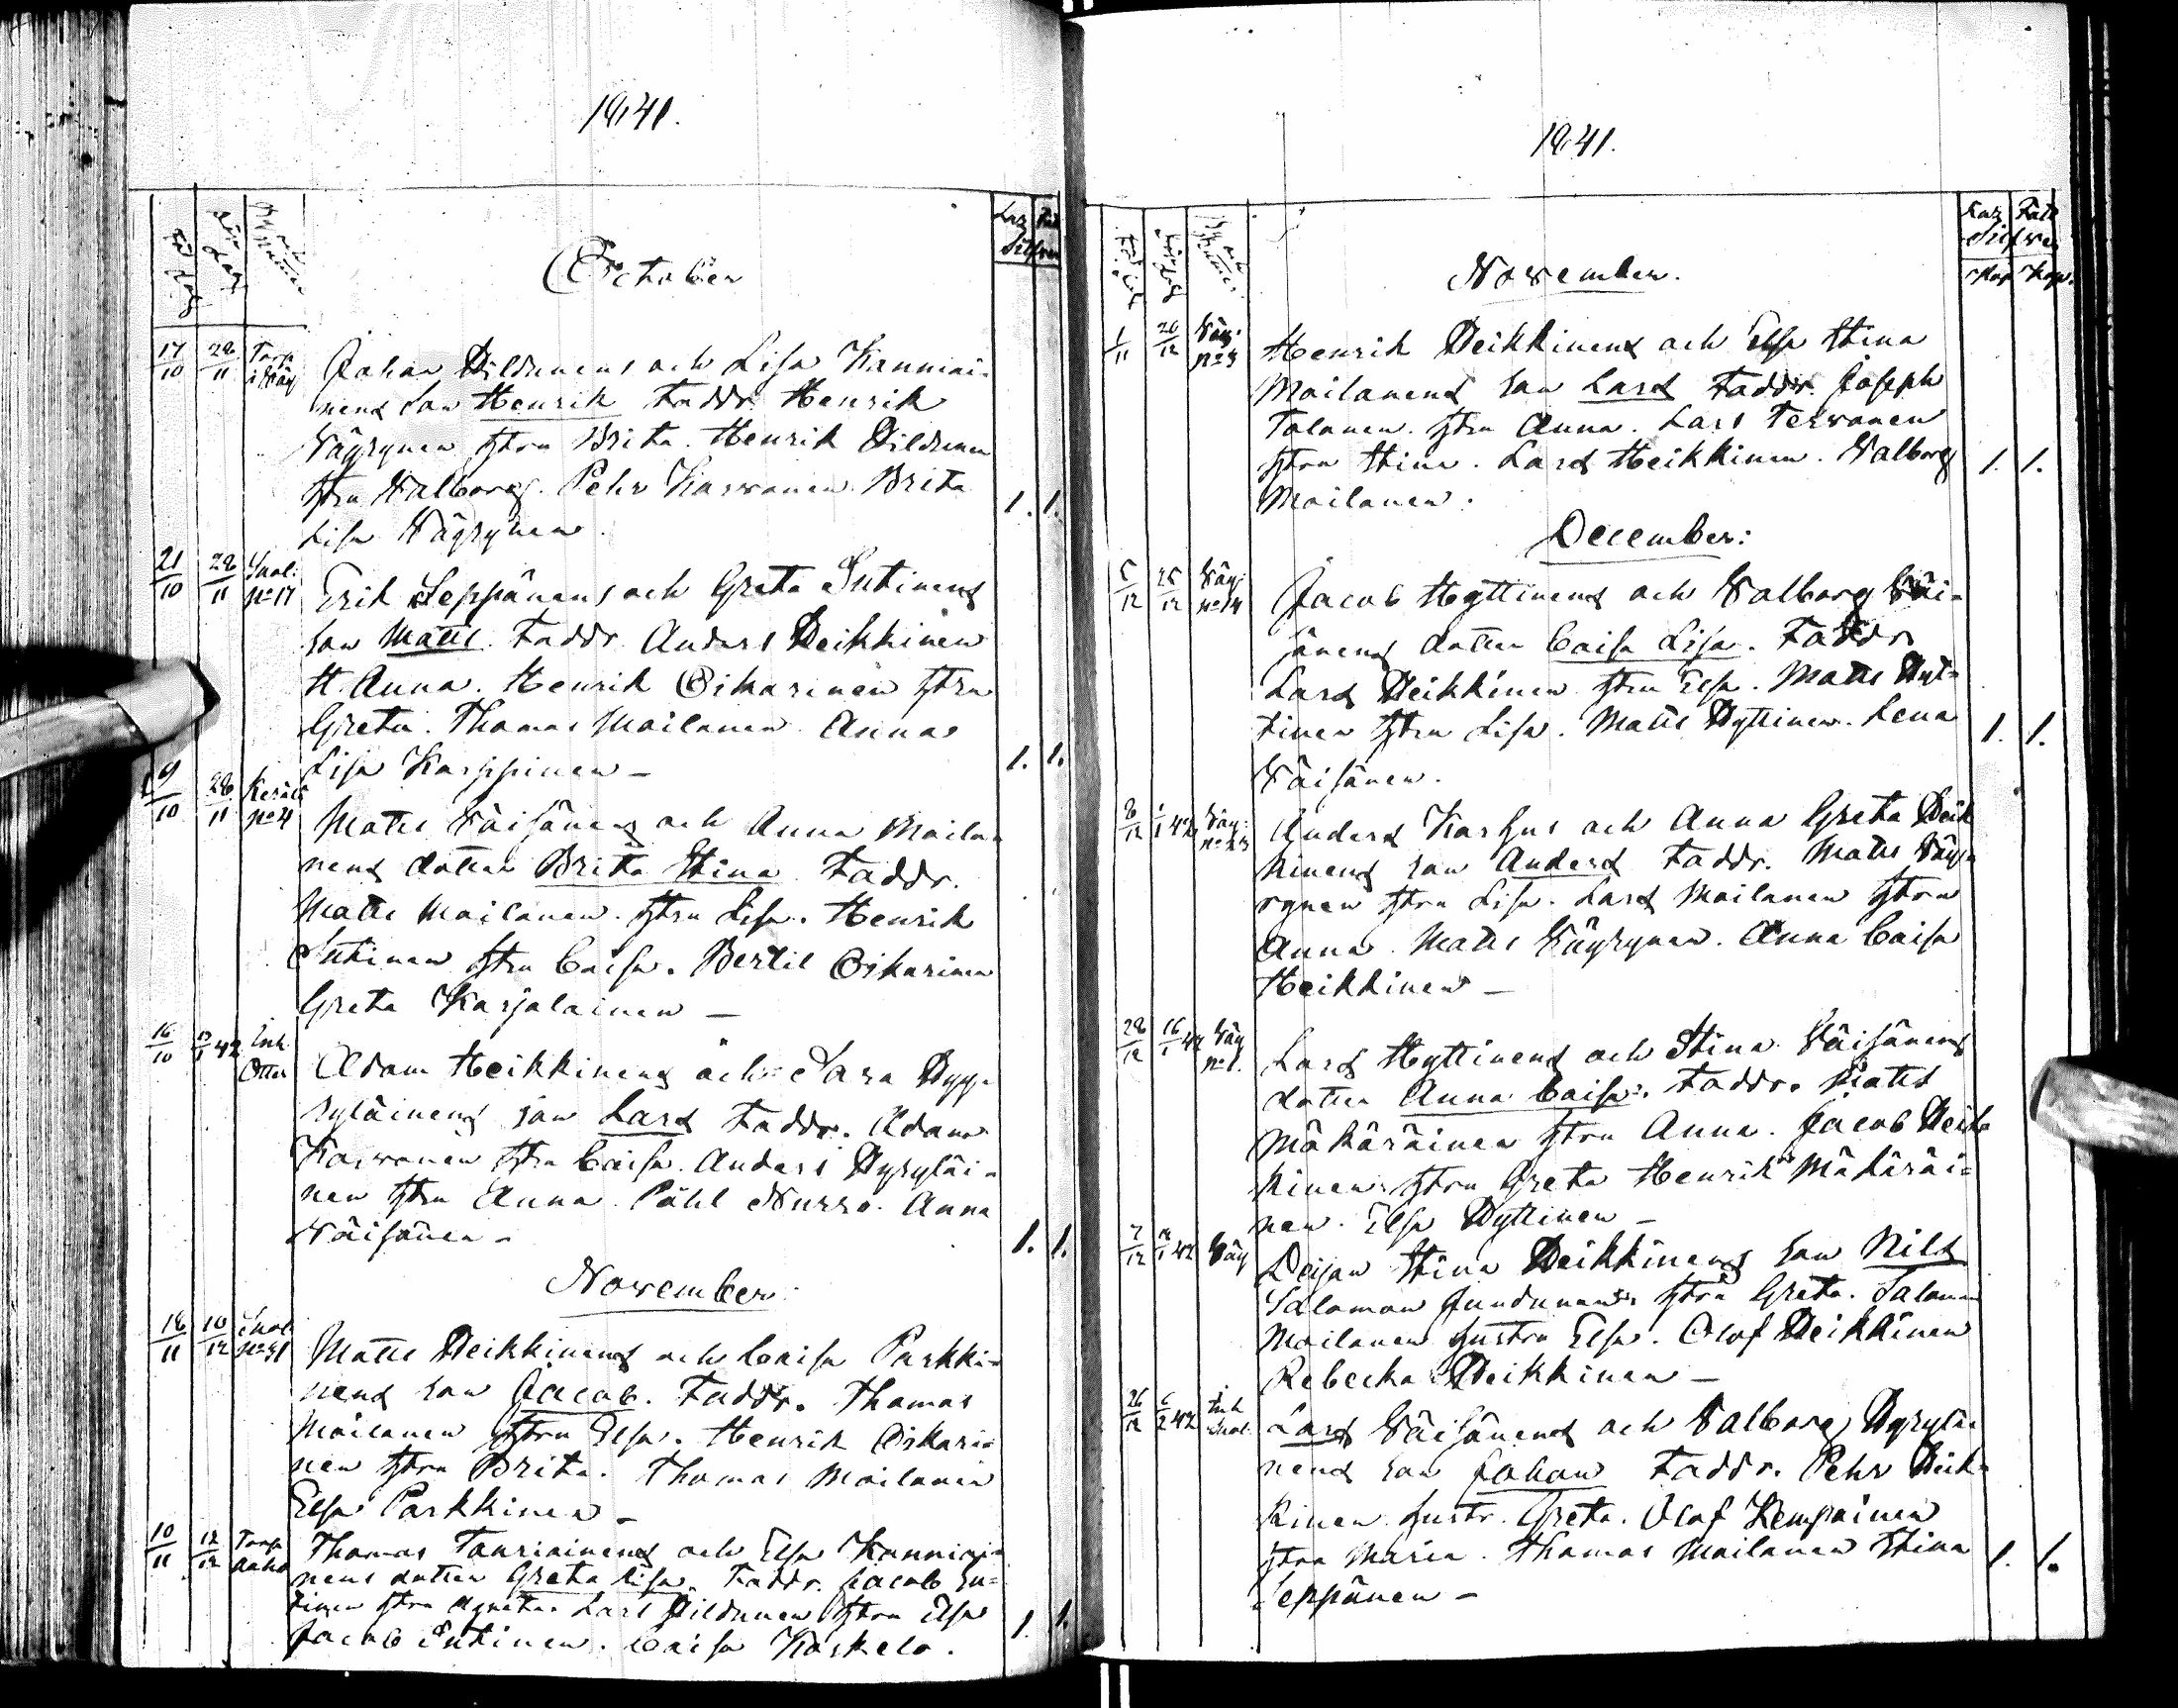 1841.
October
17/10 28/11 Torp i Väy Johan Hildunens och Lisa Kanniai-
nens son Henrik Faddr. Henrik
Väyrynen hstru Brita. Henrik Hildunen
hstru Valborg. Pehr Karvonen Brita 1. 1.
Lisa Väyrynen.
21/10 28/11 Suol: No 17 Erik Seppänens och Greta Sutinens
son Matts. Faddr Anders Heikkinen
H. Anna. Henrik Oikarinen hstru
Greta. Thomas Moilanen Anna
Lisa Karppinen – 1. 1.
9/10 28/11 No 4 Matts Väisänens och Anna Moila-
nens dotter Brita Stina Faddr.
Matts Moilanen. hstru Lisa. Henrik
Sutinen hstru Caisa. Bertil Oikarinen
Greta Karjalainen –
16/10 42 Inh. Adam Heikkinens och Sara Hyry-
ryläinens son Lars Faddr. Adam
Karvonen hstru Caisa. Anders Hyryläi-
nen hstru Anna. Påhl Nurro. Anna
Väisänen – 1. 1.
November
18/11 10/12 Suol. Matts Heikkinens och Caisa Parkki-
nens son Jacob. Faddr. Thomas
Moilanen hstru Elsa. Henrik Oikari-
nen hstru Brita. Thomas Moilanen
Elsa Parkkinen –
10/11 12/12 Torp Thomas Tauriainens och Elsa Kanniai-
nens dotter Greta Lisa. Faddr. Jacob Su-
tinen hstru Agneta. Lars Hildunen hstru Elsa 1. 1.
Jacob Sutinen. Caisa Koskelo.
1841.
November.
1/11 26/12 Väy: Henrik Heikkinens och Elsa Stina
Moilanens son Lars Faddr. Joseph
Tolonen. hstru Anna. Lars Tervonen
hstru Stina. Lars Heikkinen. Valborg 1. 1.
Moilanen.
December:
5/12 25/12 Väy: No 14 Jacob Hyttinens och Valborg Väi-
sänens dotter Caisa Lisa. Faddr
Lars Heikkinen hstru Elsa. Matts Hyt-
tinen hstru Lisa. Matts Hyttinen. Lena 1. 1.
Väisänen.
8/12 42 Väy: Anders Karhus och Anna Greta Heik
kinens son Anders Faddr. Matts Väy-
rynen hstru Lisa. Lars Moilanen hstru
Anna. Matts Väyrynen. Anna Caisa
Heikkinen –
28/12 16/1 42 Väy No 1. Lars Hyttinens och Stina Väisänens
dotter Anna Caisa. Faddr. Matts
Mäkäräinen hstru Anna. Jacob Heik
kinen hstru Greta Henrik Mäkäräi-
nen. Elsa Hyttinen –
7/12 42 Väy Pigan Stina Heikkinens son Nils
Salomon Jundunen hstru Greta. Salomon
Moilanen hustru Elsa. Olof Heikkinen
Rebecka Heikkinen –
26/12 6/2 42 Inh Suol. Lars Väisänens och Valborg Hyryläi
nens son Johan Faddr. Pehr Heik-
kinen hustr. Greta. Olof Kempainen
hstru Maria. Thomas Moilanen Stina 1. 1.
Seppänen –